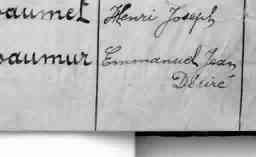 aumet Henri Joseph
aumur Emmanuel Jean
Désiré